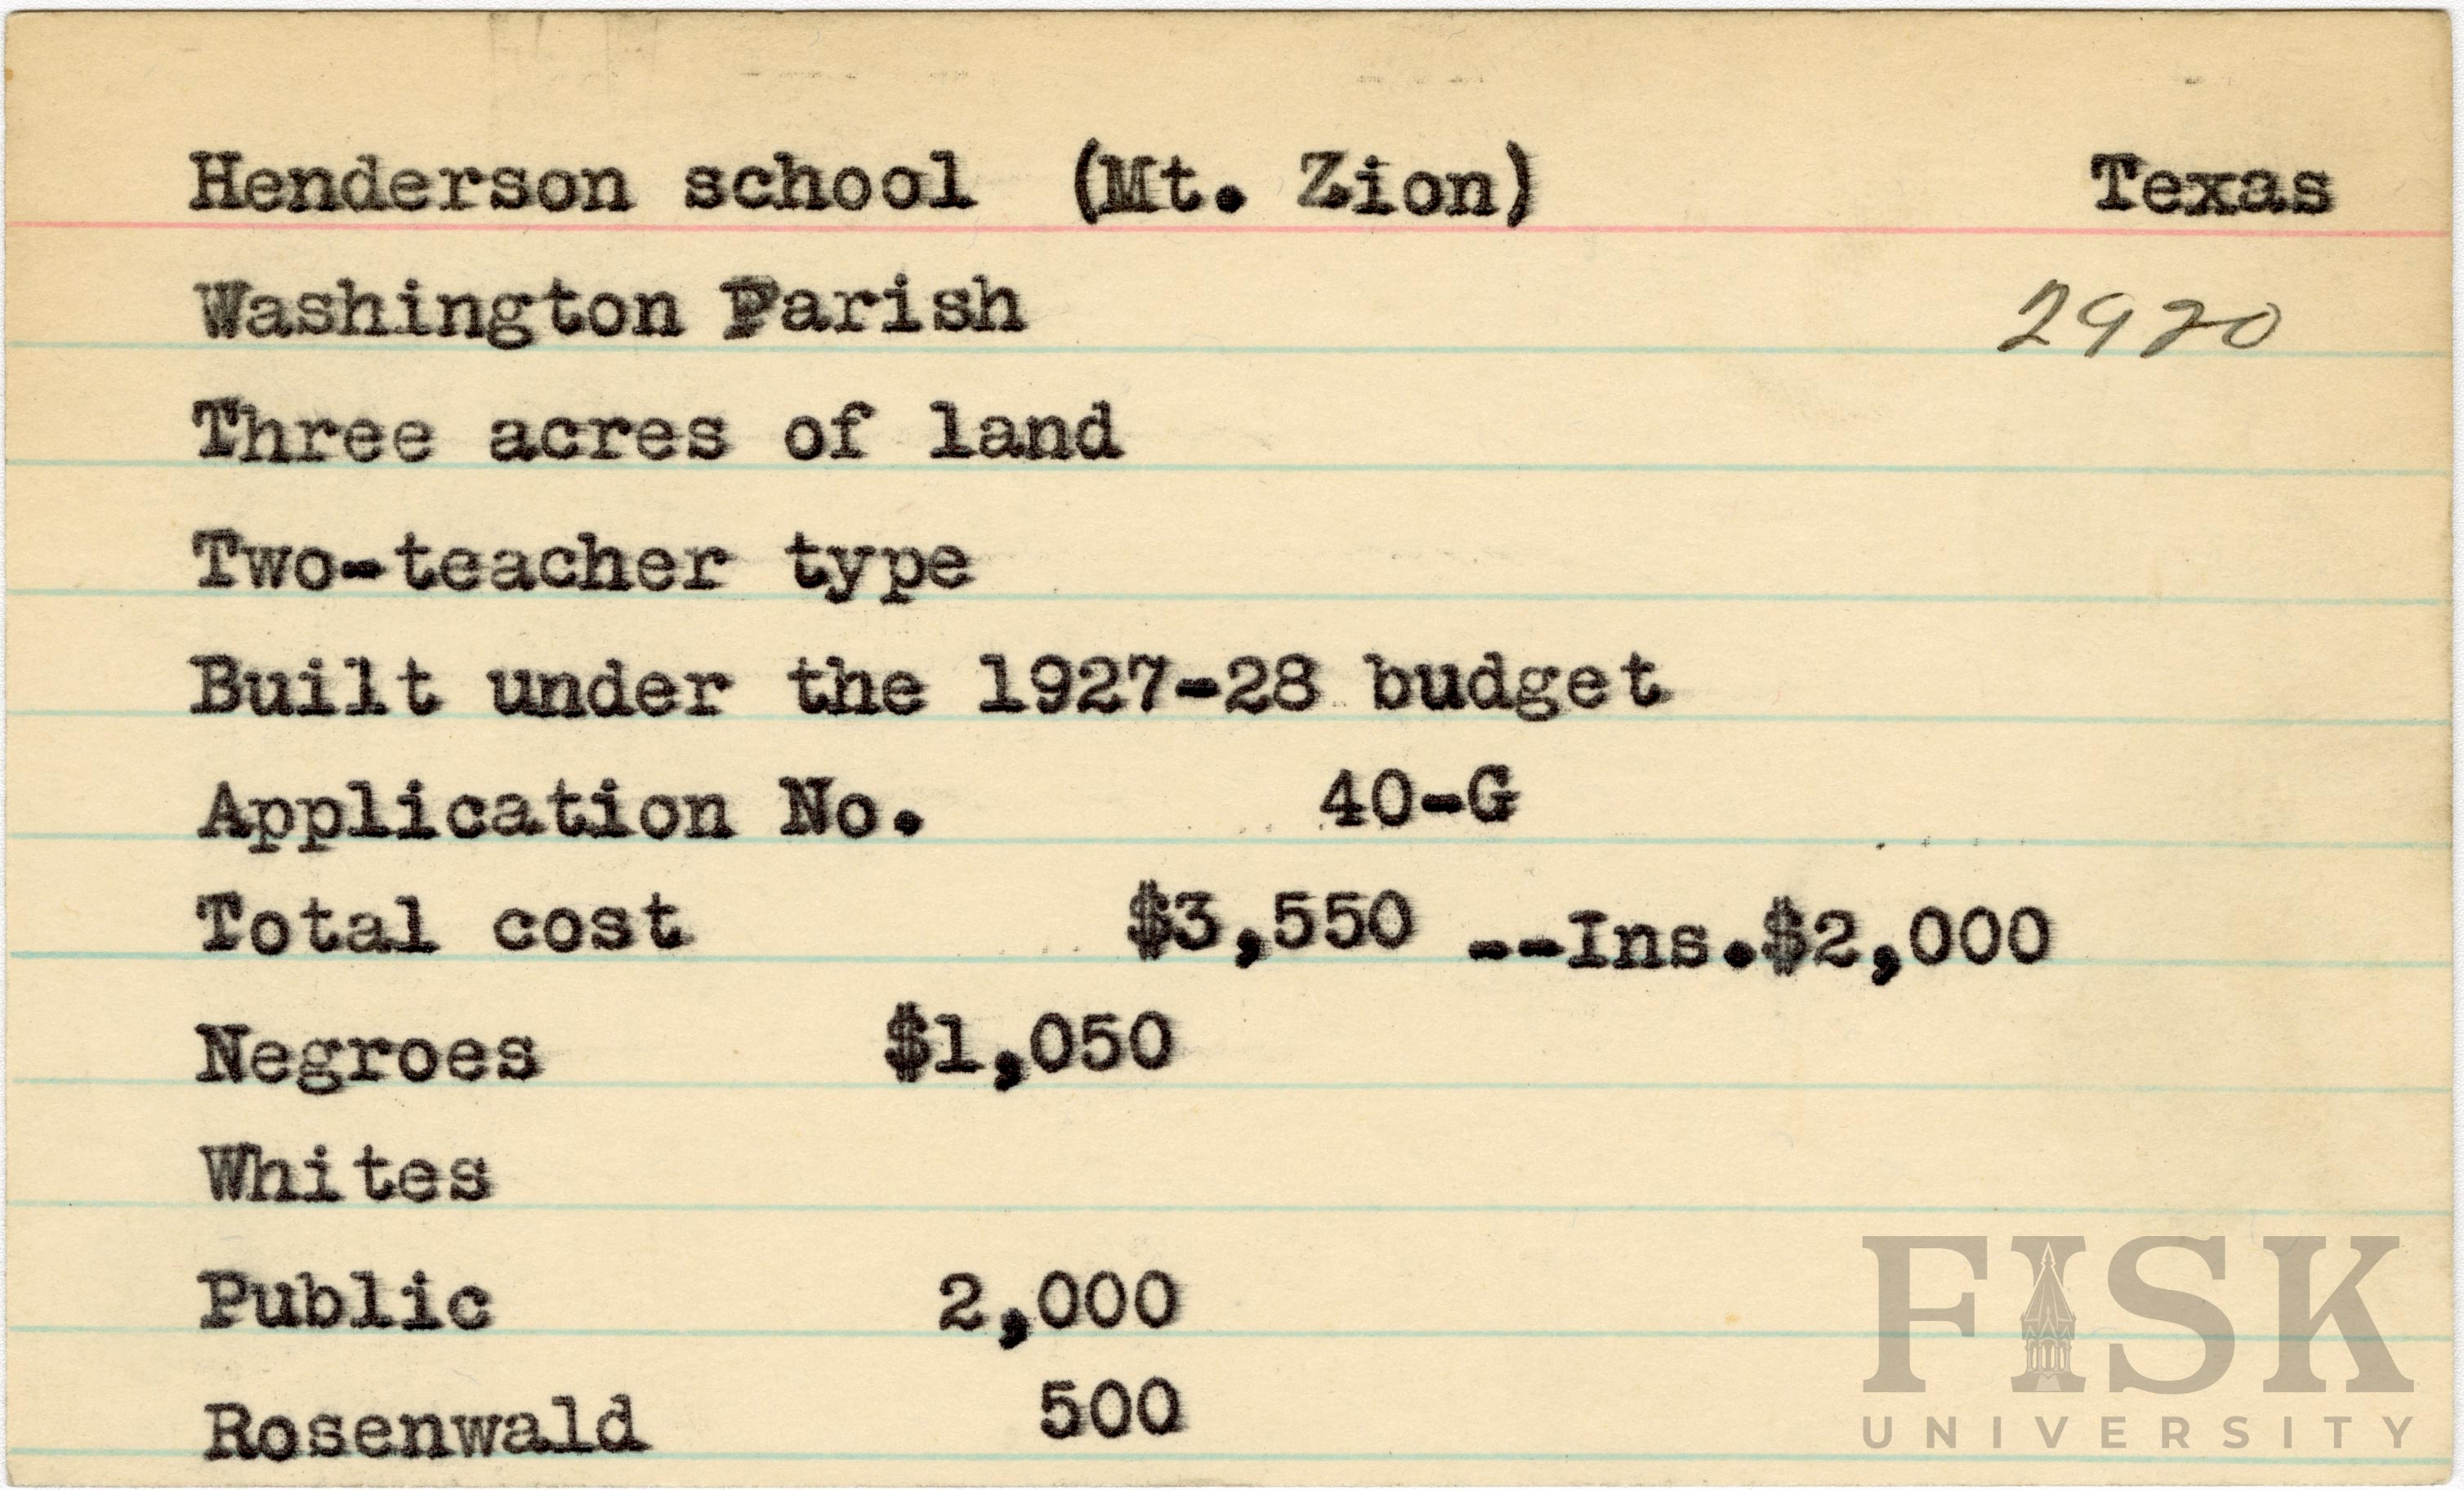 Henderson school (Mt. Zion) Texas
Washington Parish 2920
Three acres of land
Two-teacher type
Built under the 1927-28 budget
Application No. 40-G
Total cost $3,550 --Ins.$2,000
Negroes $1,050
Whites
Public 2,000
Rosenwald 500
FISK
UNIVERSITY